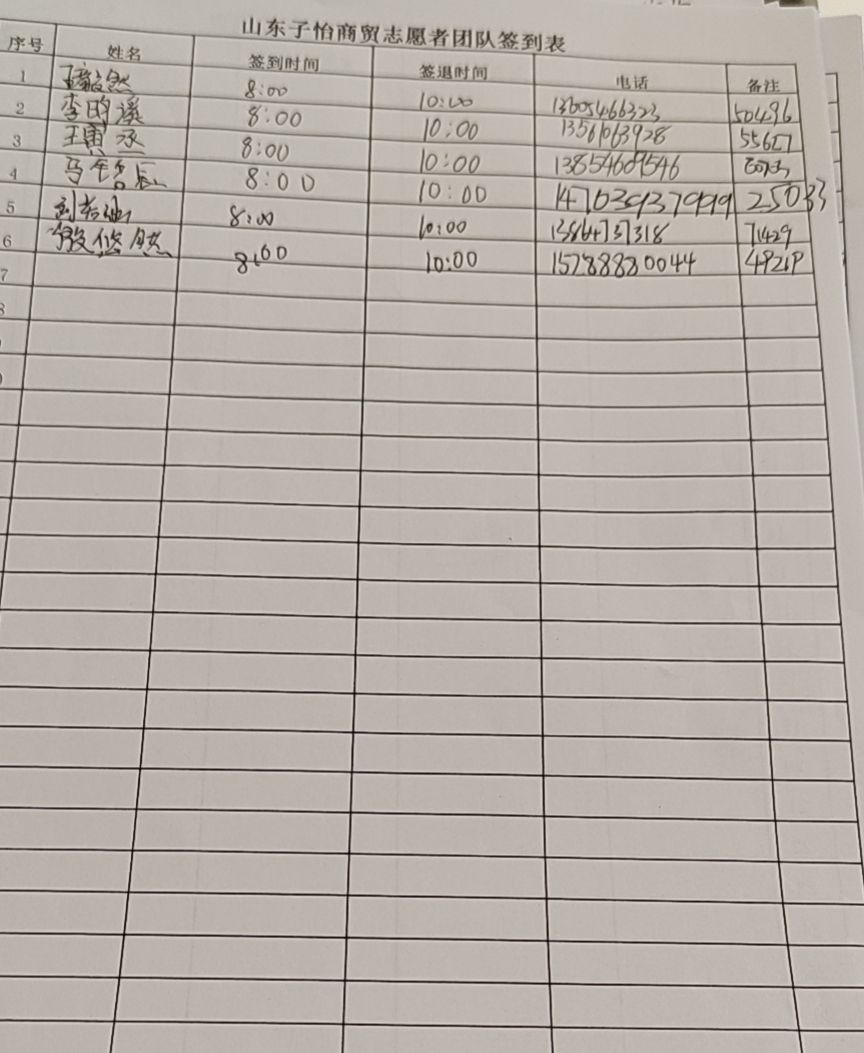 山东子怡商贸志愿者团队签到表
序号 姓名 签到时间 签退时间 电话 备注
1 8:00 10:00 13605466323 50496
2 李昀溪 8:00 10:00 13561063928 55627
3 王寅承 8:00 10:00 13854609546
4 马 辰 8:00 10:00 14703937999 25033
5 8:00 10:00 13864737318 71429
6 悠然 8:00 10:00 15788880044 49219
7